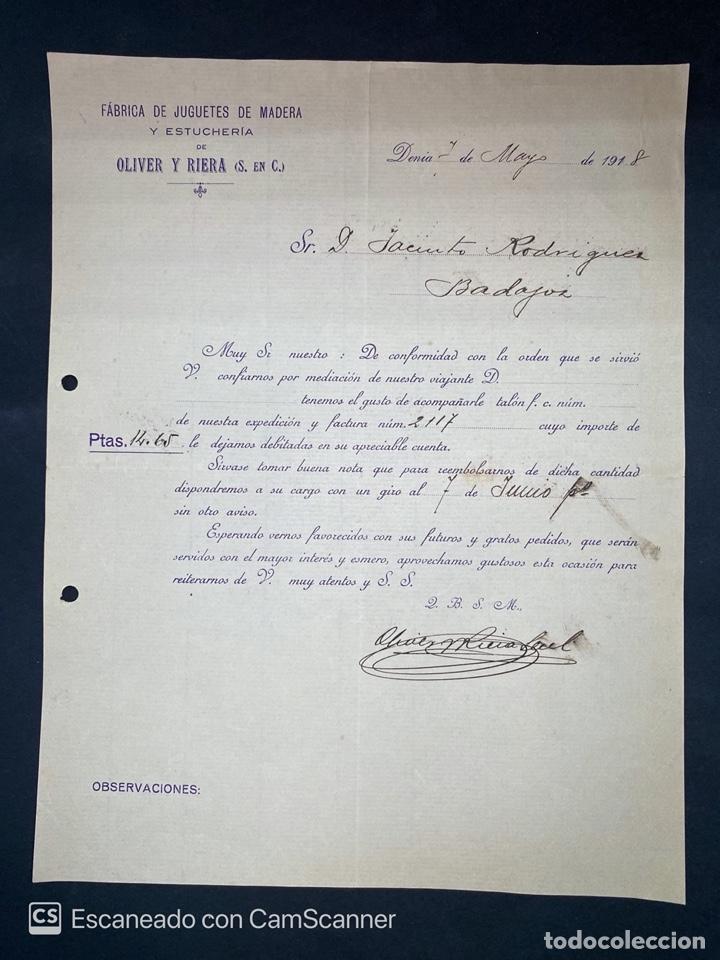 FÁBRICA DE JUGUETES DE MADERA
Y ESTUCHERÍA
DE
OLIVER Y RIERA (S. EN C.)
Denia 7 de Mayo de 1918
Sr. D. Jacinto Rodriguez
Badajoz
Muy Sr nuestro: De conformidad con la orden que se sirvió
V. confiarnos por mediación de nuestro viajante D.
tenemos el gusto de acompañarle talón f. c. núm.
de nuestra expedición y factura núm. 2117 cuyo importe de
Ptas. 14.65 le dejamos debitadas en su apreciable cuenta.
Sírvase tomar buena nota que para reembolsarnos de dicha cantidad
dispondremos a su cargo con un giro al 7 de Junio
sin otro aviso.
Esperando vernos favorecidos con sus futuros y gratos pedidos, que serán
servidos con el mayor interés y esmero, aprovechamos gustosos esta ocasión para
reiterarnos de V. muy atentos y S. S.
Q. B. S. M.,
Oliver y Riera
OBSERVACIONES:
CS Escaneado con CamScanner
todocoleccion